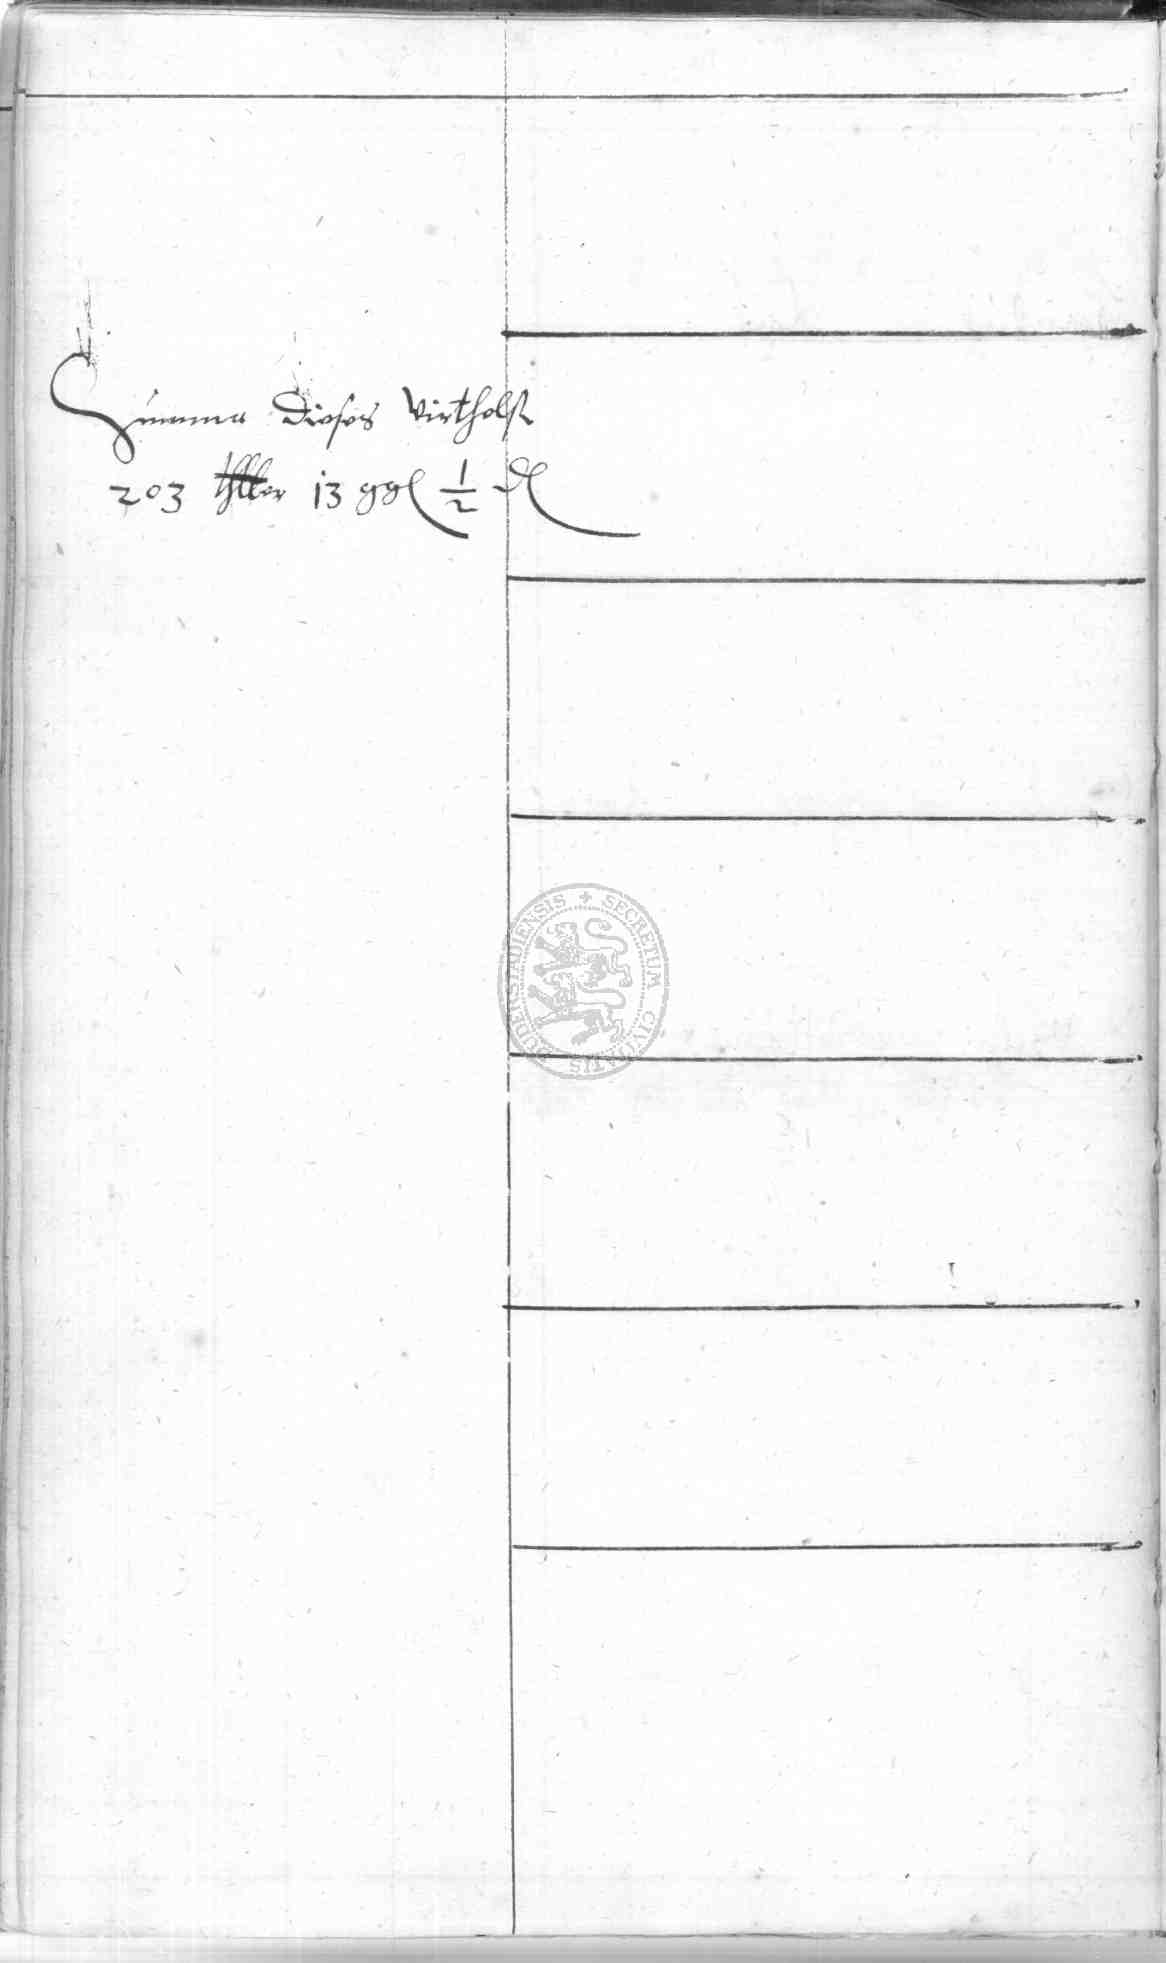 Summa dieses Virthels
203 thller 13 ggl 1/2 ₰
SECRETUM CIVITATIS DUDERSTADIENSIS